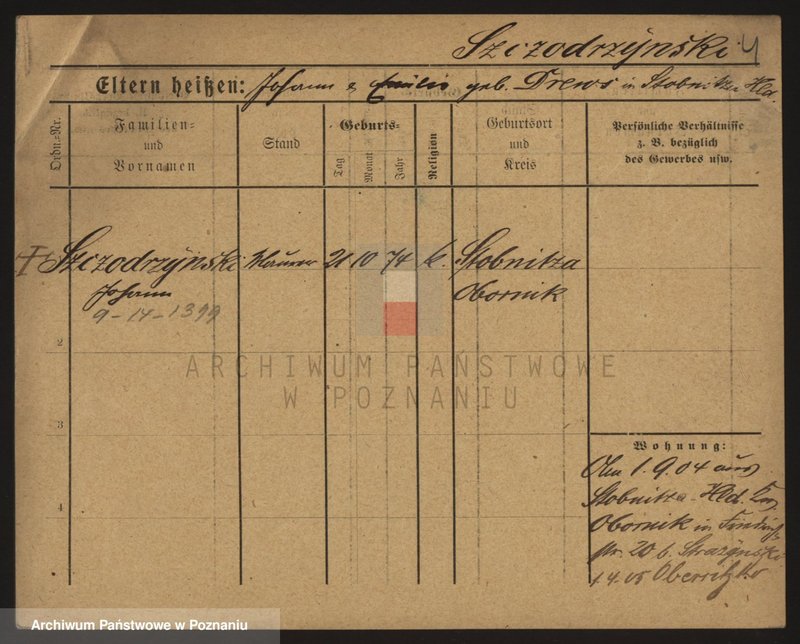 Szczodrzynski
Eltern heißen: Johann & Emilie geb. Drews in Stobnitza Hld.
Ordn.-Nr.
Familien-
und
Vornamen
Stand
Geburts-
Tag
Monat
Jahr
Religion
Geburtsort
und
Kreis
Persönliche Verhältnisse
z. B. bezüglich
des Gewerbes usw.
Szczodrzynski Maurer 21 10 74 k. Stobnitza
Johann Obornik
9-14-1399
2
3
4
ARCHIWUM PAŃSTWOWE
W POZNANIU
Wohnung:
1.9.04 aus
Stobnitza Hld.
Obornik in
str. 20 b. Strazynski
1.4.05 Obersitzko
Archiwum Państwowe w Poznaniu